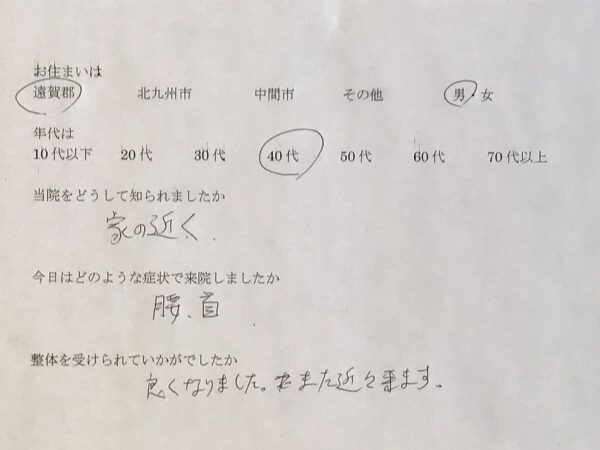 お住まいは
遠賀郡 北九州市 中間市 その他 男・女
年代は
10代以下 20代 30代 40代 50代 60代 70代以上
当院をどうして知られましたか
家の近く.
今日はどのような症状で来院しましたか
腰、首
整体を受けられていかがでしたか
良くなりました。また近々来ます.